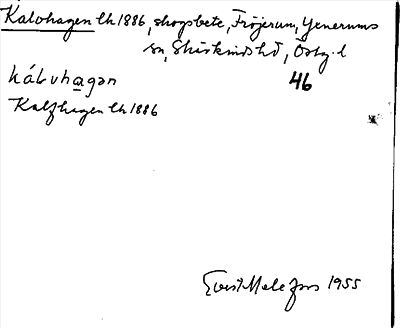 Kalvhagen lk 1886, skogsbete, Fröjerum, Yxnerums
sn, Skärkinds hd, Östg. l
46
kálvhagən
Kalfhagen lk 1886
Evert Melefors 1955